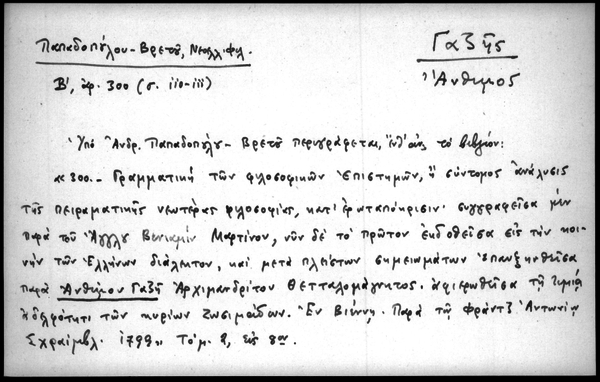 Παπαδοπούλου-Βρετοῦ, Νεοελλ. φιλ.
Γαζῆς
Ἄνθιμος
Β', ἀρ. 300 (σ. 110-111)
Ὑπὸ Ἀνδρ. Παπαδοπούλου-Βρετοῦ περιγράφεται, τὸ βιβλίον:
«300.- Γραμματικὴ τῶν φιλοσοφικῶν ἐπιστημῶν, ἢ σύντομος ἀνάλυσις
τῆς πειραματικῆς νεωτέρας φιλοσοφίας, κατ' ἐρωταπόκρισιν· συγγραφεῖσα μὲν
παρὰ τοῦ Ἄγγλου Βενιαμὶν Μαρτίνου, νῦν δὲ τὸ πρῶτον ἐκδοθεῖσα εἰς τὴν κοι-
νὴν τῶν Ἑλλήνων διάλεκτον, καὶ μετὰ πλείστων σημειωμάτων ἐπαυξηνθεῖσα
παρὰ Ἀνθίμου Γαζῆ Ἀρχιμανδρίτου Θετταλομάγνητος. ἀφιερωθεῖσα τῇ τιμίᾳ
ἀδελφότητι τῶν κυρίων Ζωσιμάδων. Ἐν Βιέννῃ. Παρὰ τῷ Φρὰντζ Ἀντωνίῳ
Σχραίμβλ. 1799» Τόμ. 2, εἰς 8ον.